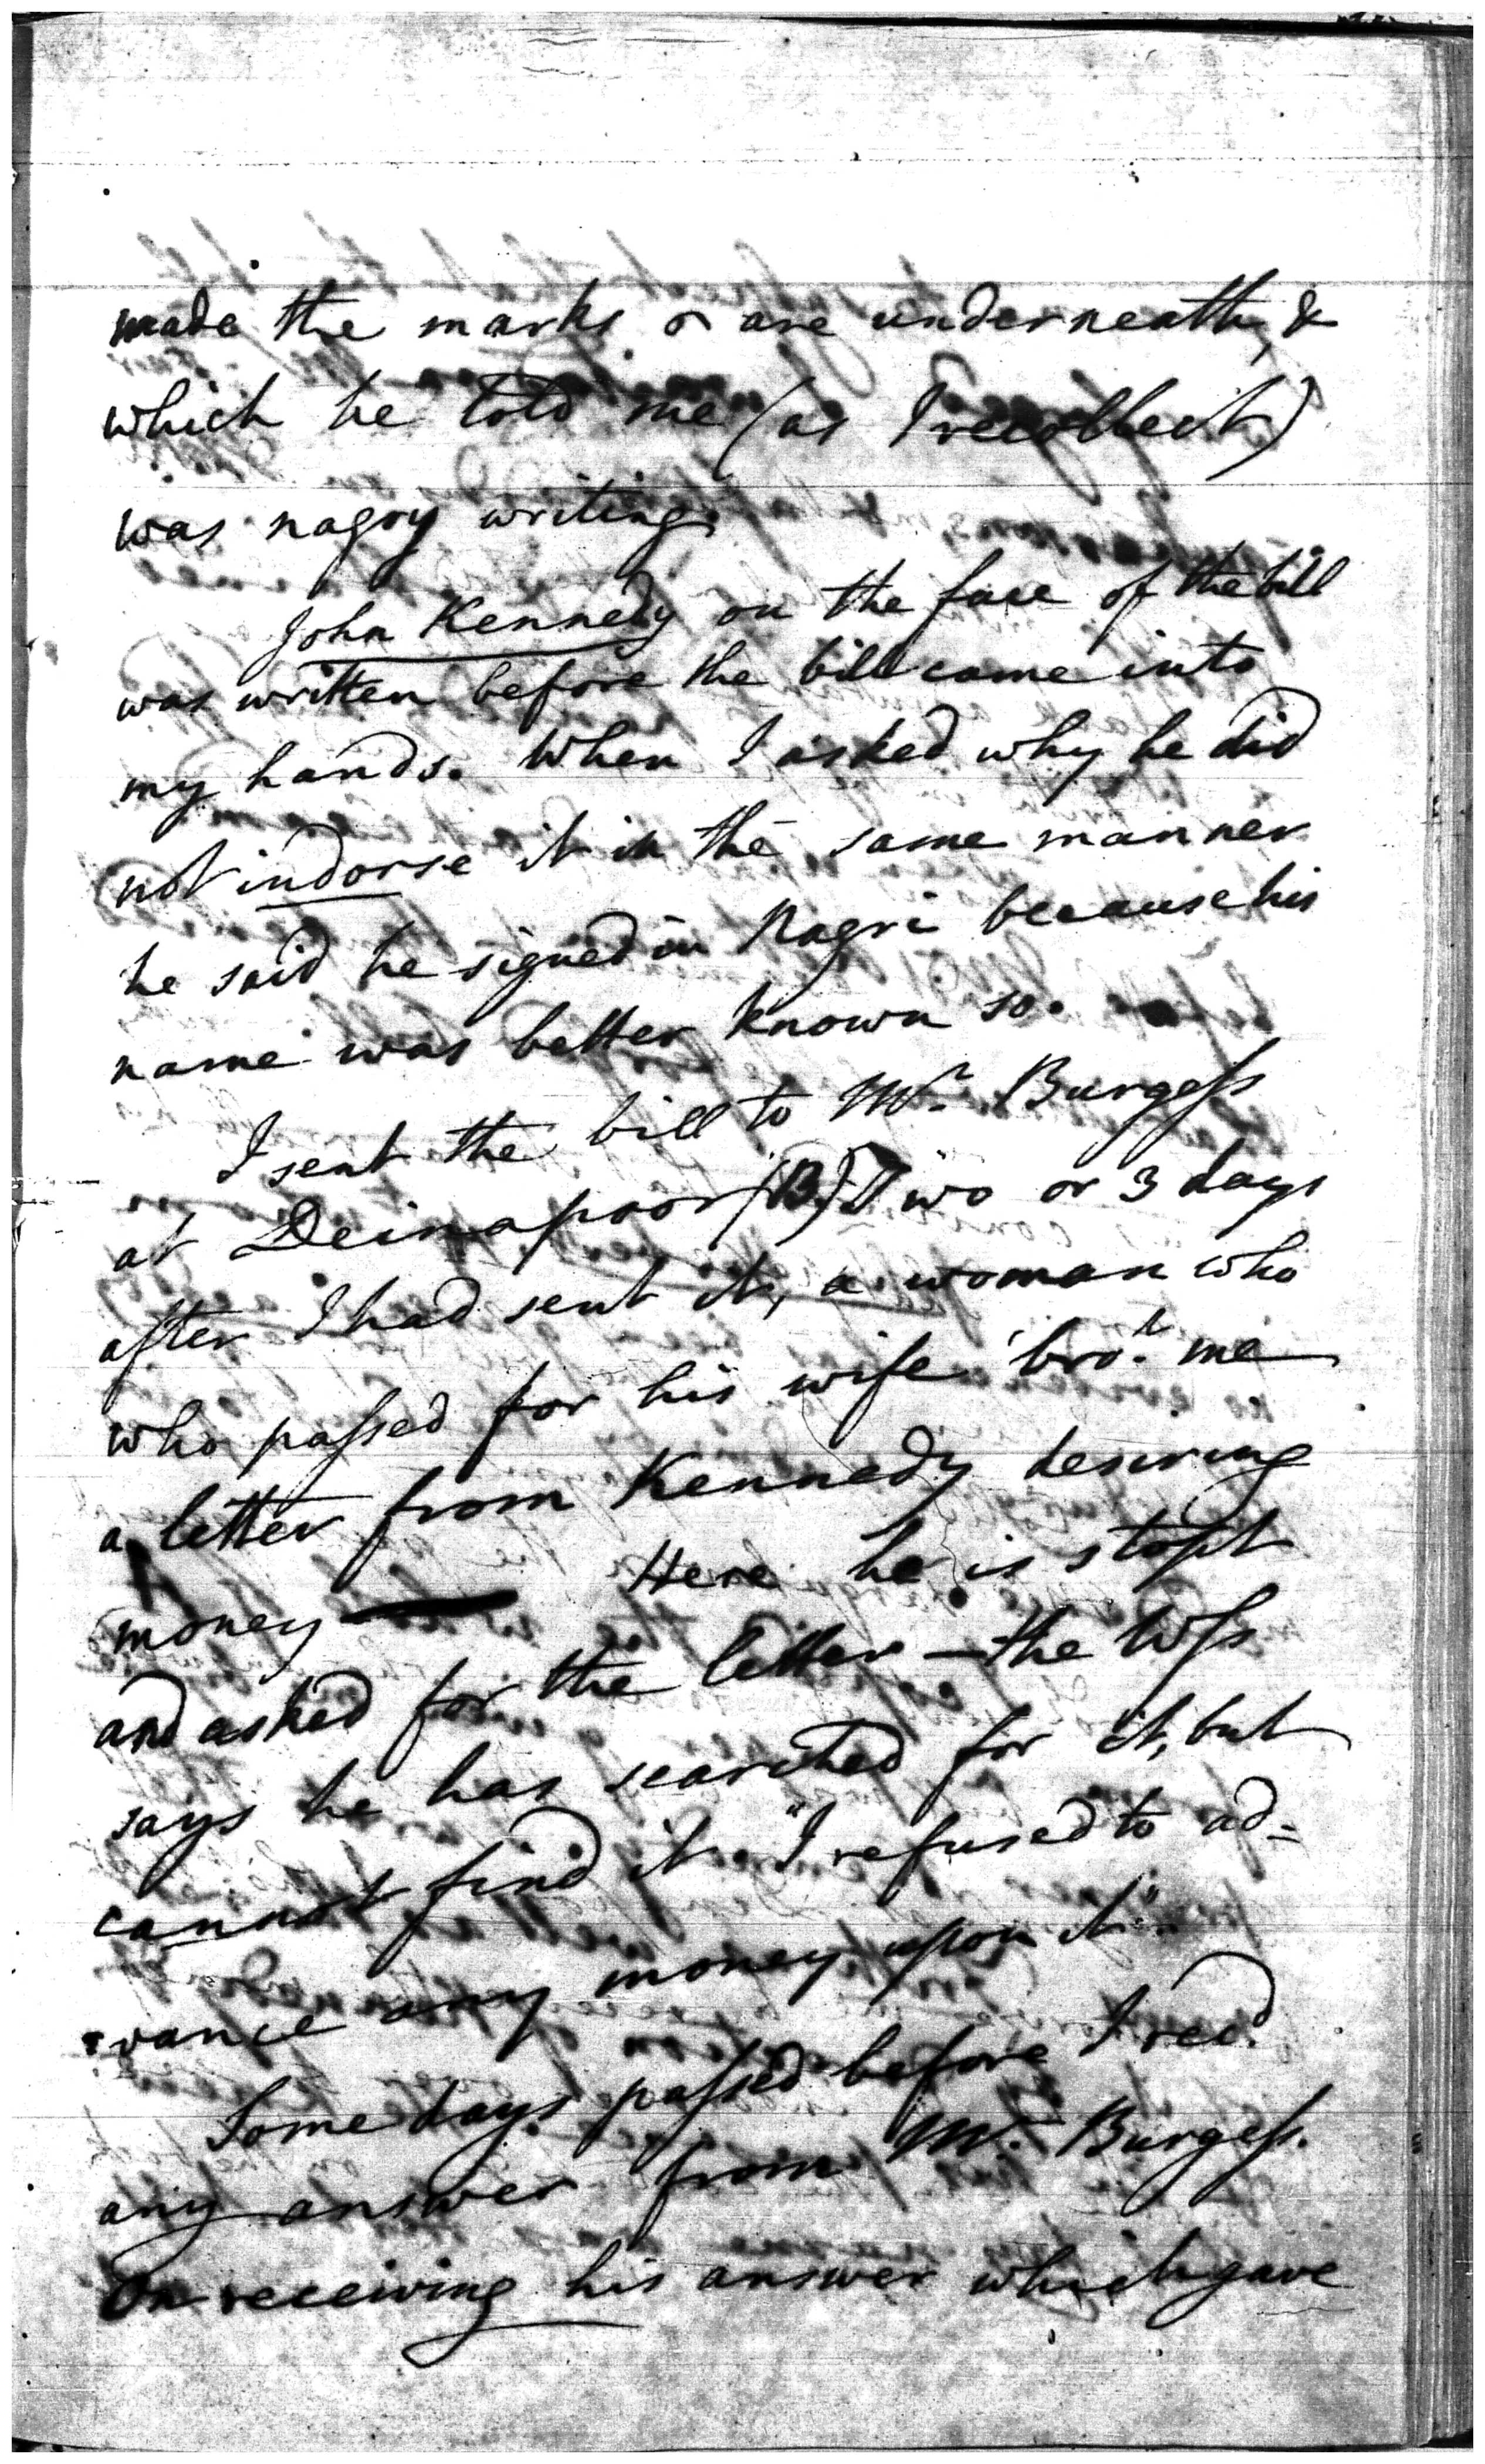 made the marks & are underneath, &
which he told me (as I recollect)
was nagry writing.
John Kennedy on the face of the bill
was written before the bill came into
my hands. When I asked why he did
not indorse it in the same manner
he said he signed in Nagri because his
name was better known so.
I sent the bill to Mr. Burgess
at Deinapoor (B) Two or 3 days
after I had sent it, a woman who
who passed for his wife bro.t me
a letter from Kennedy desiring
money — Here he is stopt
and asked for the letter — the Wss
says he has searched for it, but
cannot find it "I refused to ad=
vance any money upon it".
Some days passed before I recd.
any answer from Mr. Burgess.
On receiving his answer which gave